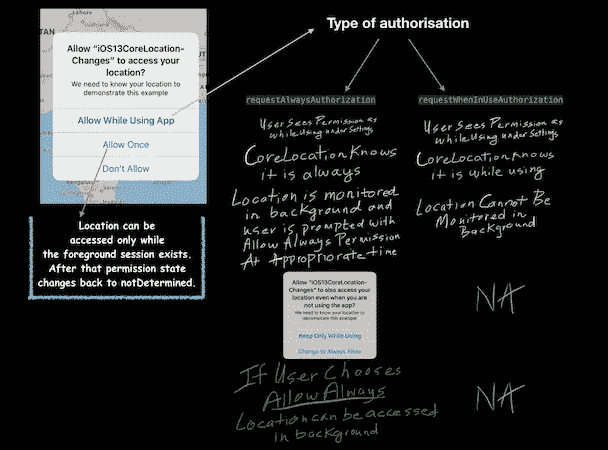 Lahore
TAN
Allow “iOS13CoreLocation-
Changes” to access your
location?
We need to know your location to
demonstrate this example
Allow While Using App
Allow Once
Don’t Allow
Bengaluru
Location can be
accessed only while
the foreground session exists.
After that permission state
changes back to notDetermined.
Type of authorisation
requestAlwaysAuthorization
User Sees Permission as
while Using under Settings
CoreLocation Knows
it is always
Location is monitored
in background and
user is prompted with
Allow Always Permission
At Appropriorate time
Allow “iOS13CoreLocation-
Changes” to also access your
location even when you are
not using the app?
We need to know your location to
demonstrate this example
Keep Only While Using
Change to Always Allow
If User Chooses
Allow Always
Location can be accessed
in background
requestWhenInUseAuthorization
User Sees Permission as
while Using under Settings
CoreLocation Knows
it is while using
Location Cannot Be
Monitored in
Background
NA
NA